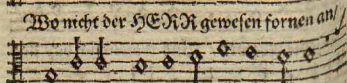 Wo nicht der HERR gewesen fornen an/